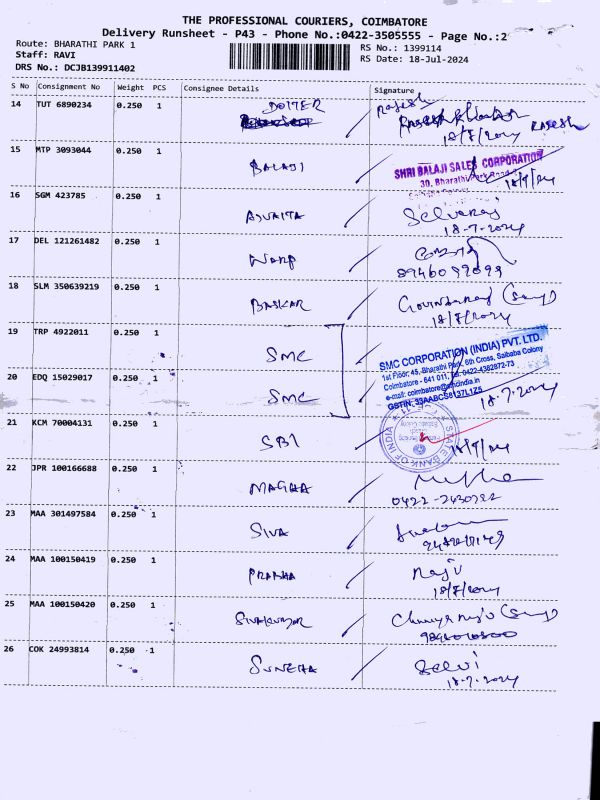 THE PROFESSIONAL COURIERS, COIMBATORE
Delivery Runsheet - P43 - Phone No.:0422-3505555 - Page No.:2
Route: BHARATHI PARK 1
RS No.: 1399114
Staff: RAVI
RS Date: 18-Jul-2024
DRS No.: DCJB139911402
S No Consignment No Weight PCS Consignee Details Signature
14 TUT 6890234 0.250 1 Rajesh
18/7/2024 Rajesh
15 MTP 3093044 0.250 1 BALAJI
SHRI BALAJI SALES CORPORATION
30, Bharathi Park Road
16 SGM 423785 0.250 1 ADVAITA Selvaraj
18-7-2024
17 DEL 121261482 0.250 1
18 SLM 350639219 0.250 1 BASKAR Govindaraj
18/7/2024
19 TRP 4922011 0.250 1 SMC
SMC CORPORATION (INDIA) PVT. LTD.
1st Floor, 45, Bharathi Park, 6th Cross, Saibaba Colony
Coimbatore - 641 011, Tel: 0422-4382872-73
20 EDQ 15029017 0.250 1 SMC
18.7.2024
21 KCM 70004131 0.250 1 SBI
STATE BANK OF INDIA
22 JPR 100166688 0.250 1 MAGHA
23 MAA 301497584 0.250 1 SIVA
24 MAA 100150419 0.250 1 Raju
18/7/2024
25 MAA 100150420 0.250 1 SIVAKUMAR
26 COK 24993814 0.250 1 Selvi
18.7.2024